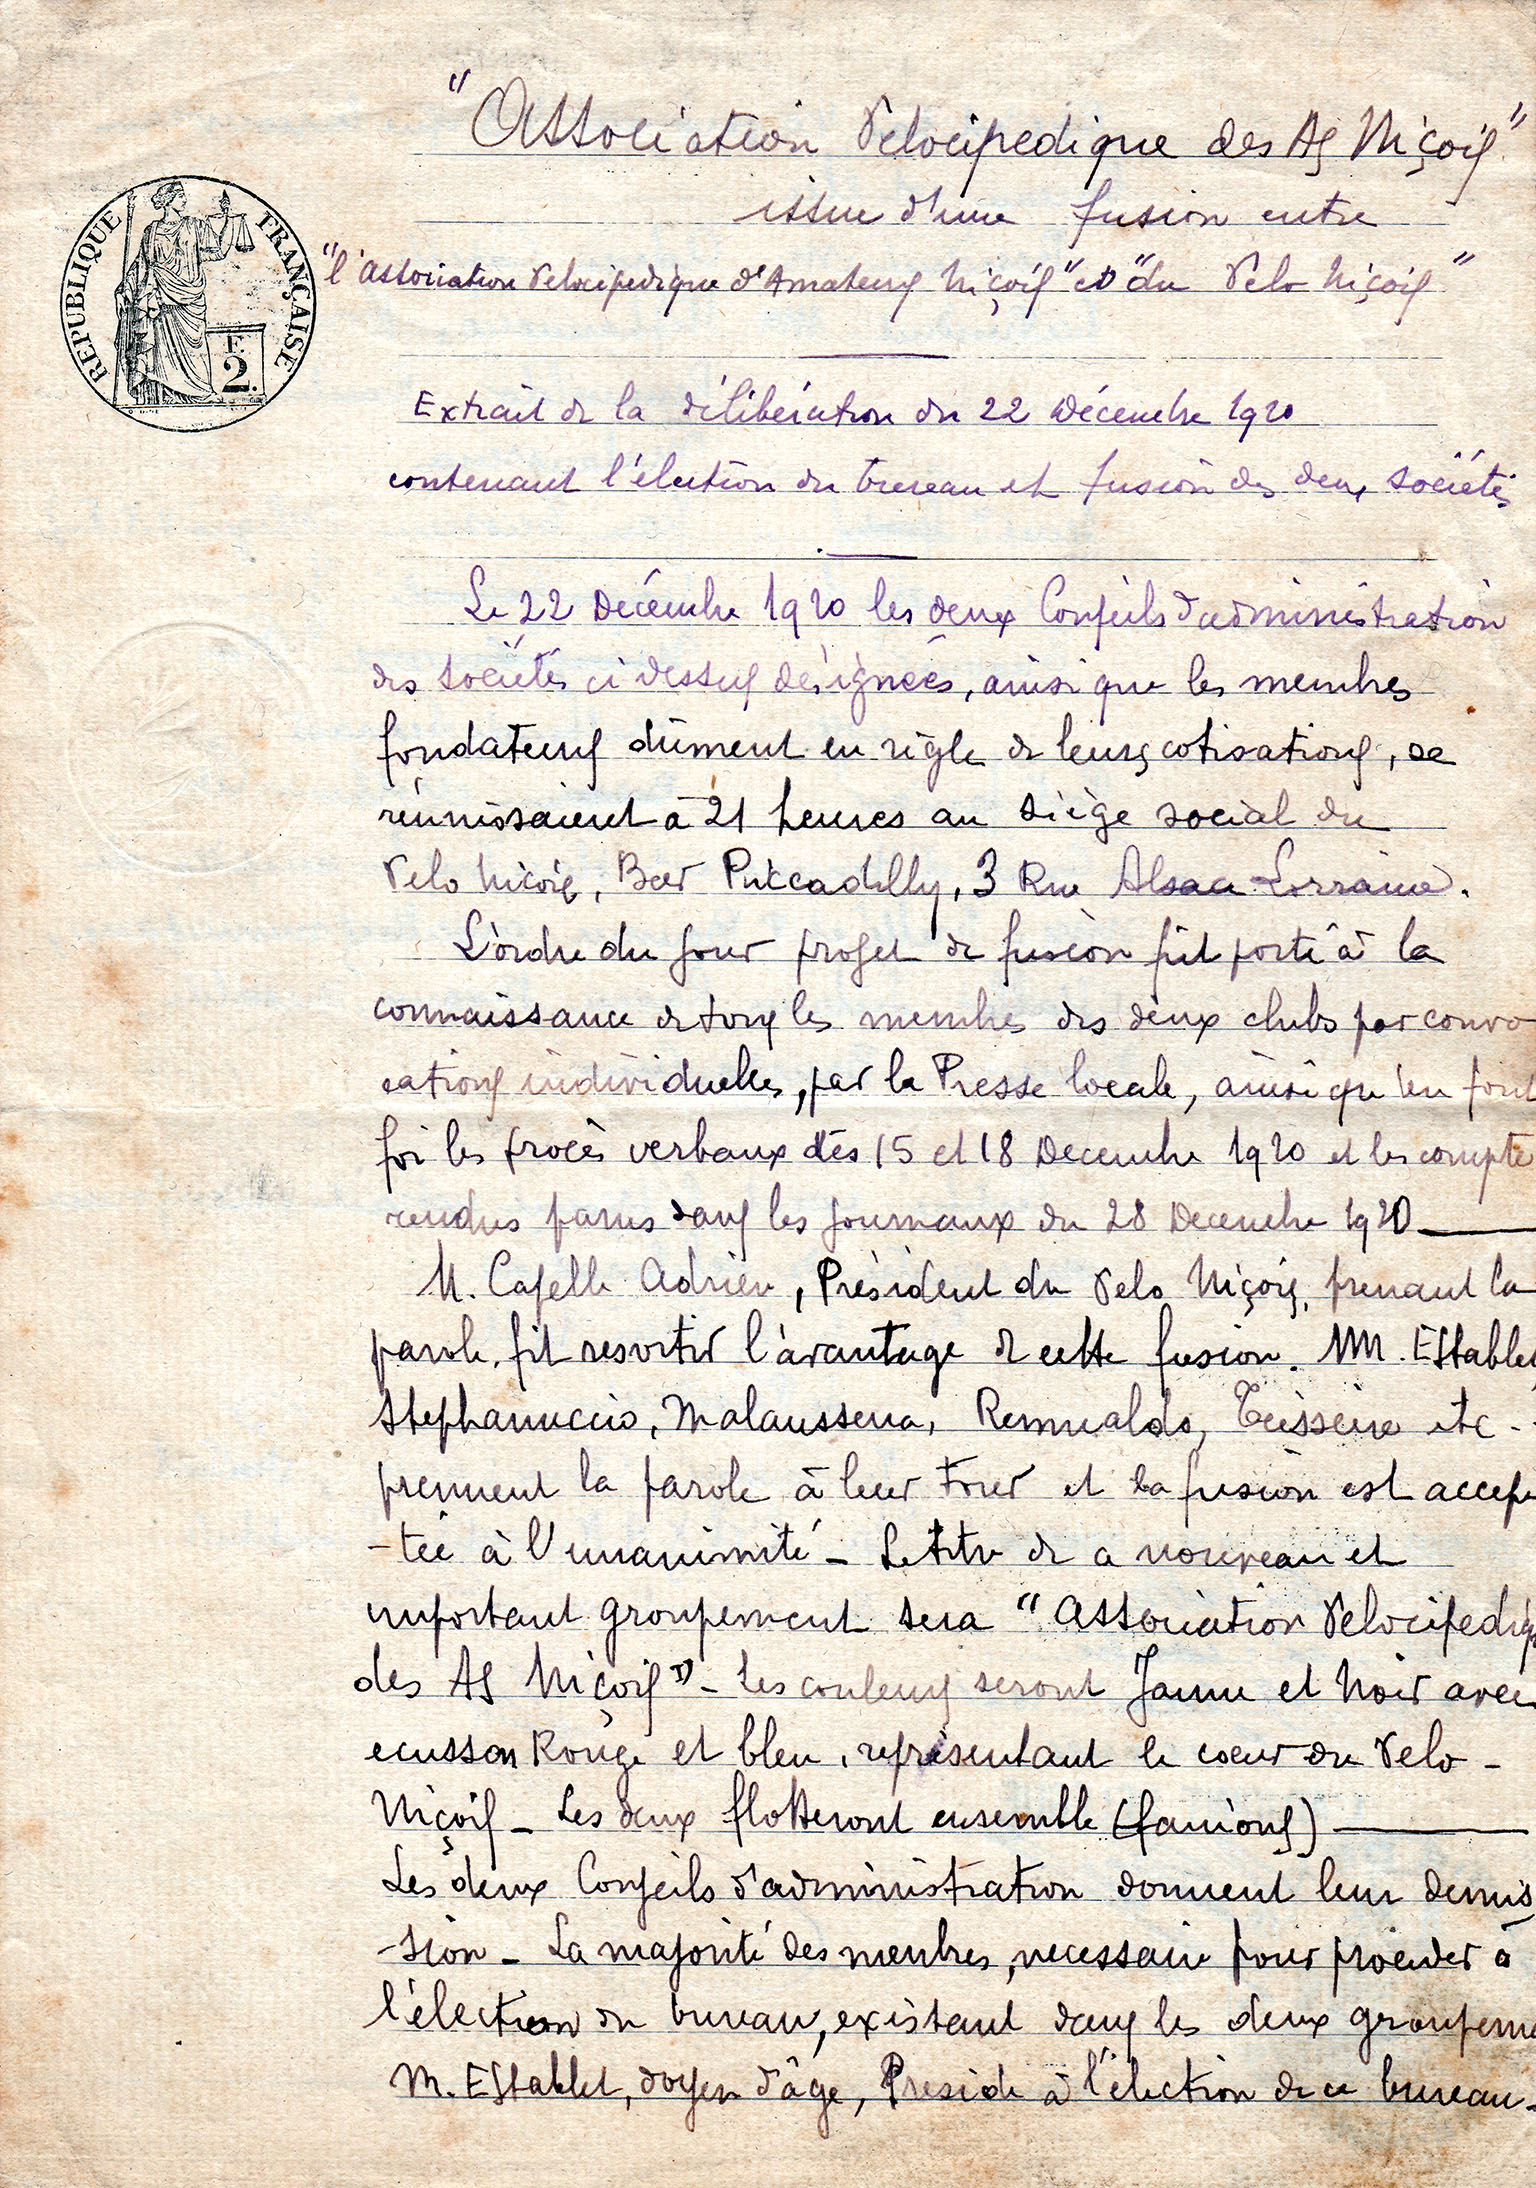 "Association Vélocipedique des As Niçois"
issue d'une fusion entre
"l'Association Velocipedique d'Amateurs Niçois" et "du Velo Niçois"
RÉPUBLIQUE FRANÇAISE
F.
2.
Extrait de la délibération du 22 Décembre 1920
contenant l'élection du bureau et fusion des deux sociétés
Le 22 Décembre 1920 les deux Conseils d'administration
des sociétés ci dessus désignées, ainsi que les membres
fondateurs dûment en règle de leurs cotisations, se
réunissaient à 21 heures au siège social du
Velo Niçois, Bar Piccadilly, 3 Rue Alsace Lorraine.
L'ordre du jour projet de fusion fut porté à la
connaissance de tous les membres des deux clubs par convo
cations individuelles, par la Presse locale, ainsi qu'en font
foi les procès verbaux des 15 et 18 Decembre 1920 et les compte
rendus parus dans les journaux du 28 Decembre 1920
M. Capelle Adrien, Président du Velo Niçois, prenant la
parole, fit resortir l'avantage de cette fusion. MM. Establet,
Stephanuccio, Malaussena, Remualdo, Teisseire etc -
prennent la parole à leur tour et la fusion est accep
-tée à l'unanimité - Le titre de ce nouveau et
important groupement sera "Association Velocipediq
des As Niçois" - Les couleurs seront Jaune et Noir avec
ecusson Rouge et bleu, représentant le coeur du Velo -
Niçois - Les deux flotteront ensemble (fanions)
Les deux Conseils d'administration donnent leur demis
-sion - La majorité des membres, necessaire pour proceder à
l'élection du bureau, existant dans les deux groupeme
M. Establet, doyen d'âge, Preside à l'élection de ce bureau -